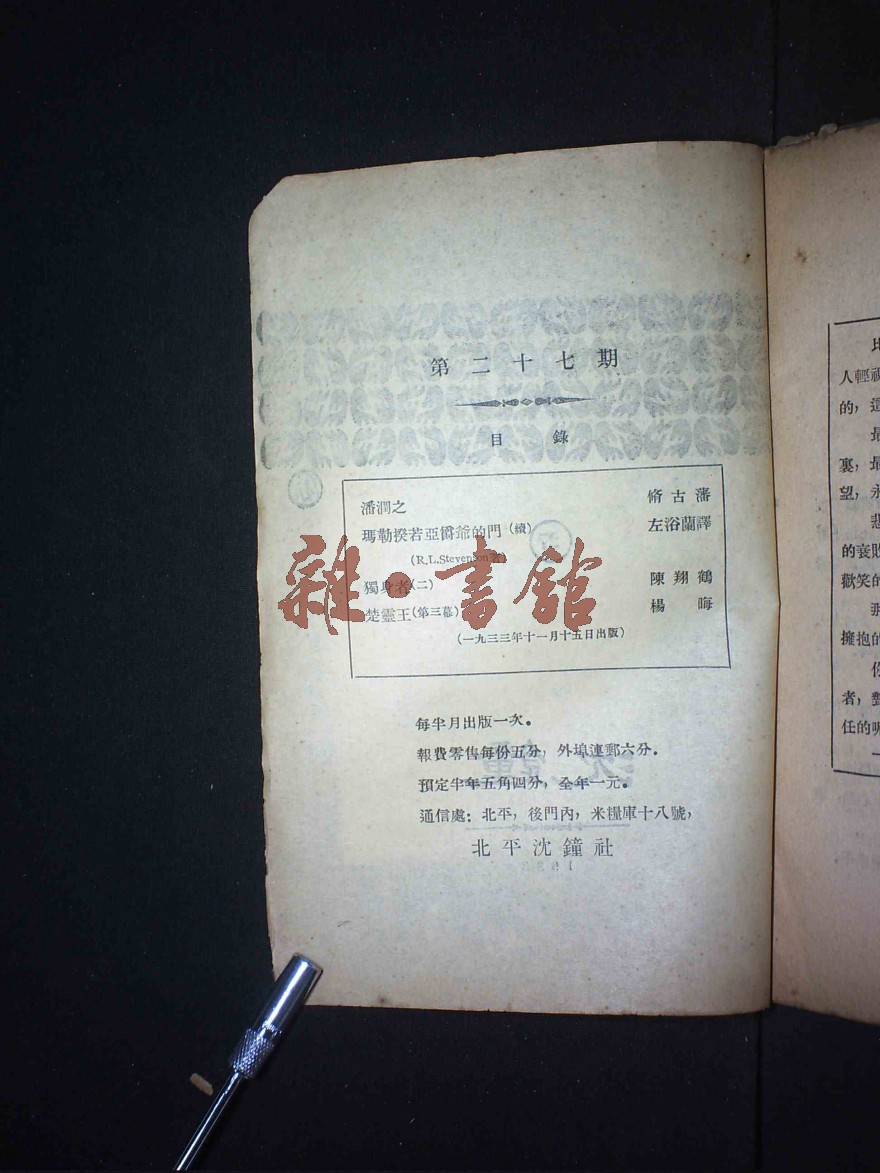 第二十七期
目錄
潘潤之 脩古藩
瑪勒揆若亞爵爺的門(續) 左浴蘭譯
(R.L.Stevenson著)
獨身者(二) 陳翔鶴
楚靈王(第三幕) 楊晦
(一九三三年十一月十五日出版)
雜·書館
每半月出版一次。
報費零售每份五分,外埠連郵六分。
預定半年五角四分,全年一元。
通信處:北平,後門內,米糧庫十八號,
北平沈鐘社
人輕視
的,這
裏,最
望,永
的衰敗
歡笑的
擁抱的
者,對
任的呢